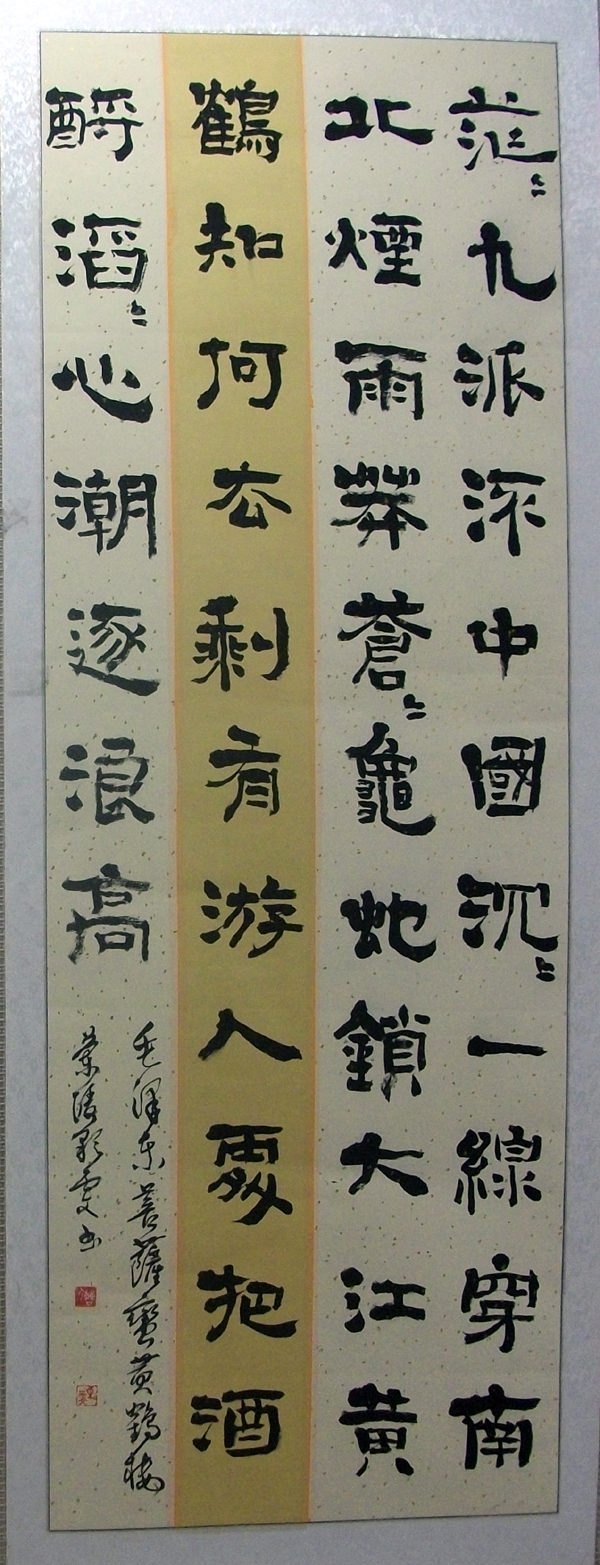 茫〻九派流中國沉〻一線穿南
北煙雨莽蒼〻龜蛇鎖大江黃
鶴知何去剩有游人處把酒
酹滔〻心潮逐浪高
毛澤東菩薩蠻黃鶴樓
書